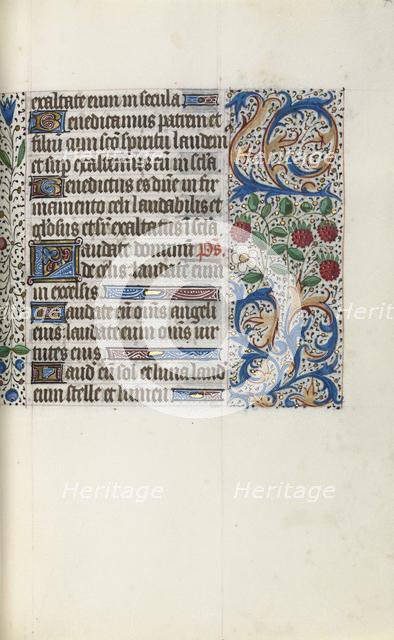 exaltate eum in secula
Benedicamus patrem et
filiū cum sctō spiritu laudem
et sup exaltemus eū in sclā
Benedictus es dñe in fir
mamento celi laudabilis et
gľosus et sr exaltatus i scla
Laudate dominum ps.
de celis laudate eum
in excelsis
Laudate eū oms angeli
eius laudate eum oms vir
tutes eius
Laud eū sol et luna laud
eum stelle et lumen
Heritage Heritage
Heritage Heritage